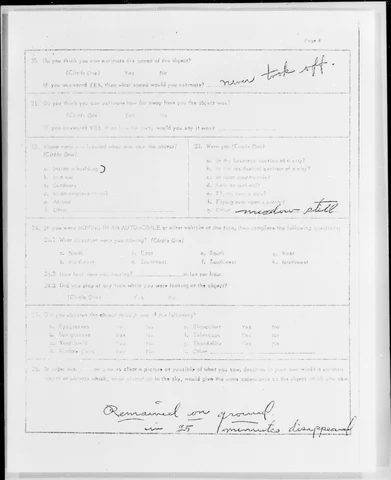 Page 4
20. Do you think you can estimate the speed of the object?
(Circle One) Yes No
IF you answered YES, then what speed would you estimate?
never took off.
21. Do you think you can estimate how far away from you the object was?
(Circle One) Yes No
IF you answered YES, then how far away would you say it was?
22. Where were you located when you saw the object?
(Circle One):
a. Inside a building
b. In a car
c. Outdoors
d. In an airplane
e. At sea
f. Other
23. Were you (Circle One)
a. In the business section of a city?
b. In the residential section of a city?
c. In open countryside?
d. Near an airfield?
e. Flying over a city?
f. Flying over open country?
g. Other meadow still
24. IF you were MOVING IN AN AUTOMOBILE or other vehicle at the time, then complete the following questions:
24.1 What direction were you moving? (Circle One)
a. North
b. Northeast
c. East
d. Southeast
e. South
f. Southwest
g. West
h. Northwest
24.2 How fast were you moving? miles per hour.
24.3 Did you stop at any time while you were looking at the object?
(Circle One) Yes No
25. Did you observe the object through any of the following?
a. Eyeglasses Yes No
b. Sun glasses Yes No
c. Windshield Yes No
d. Window glass Yes No
e. Binoculars Yes No
f. Telescope Yes No
g. Theodolite Yes No
h. Other
26. In order that you can give as clear a picture as possible of what you saw, describe in your own words a common
object or objects which, when placed up in the sky, would give the same appearance as the object which you saw.
Remained on ground.
in 25 minutes disappeared